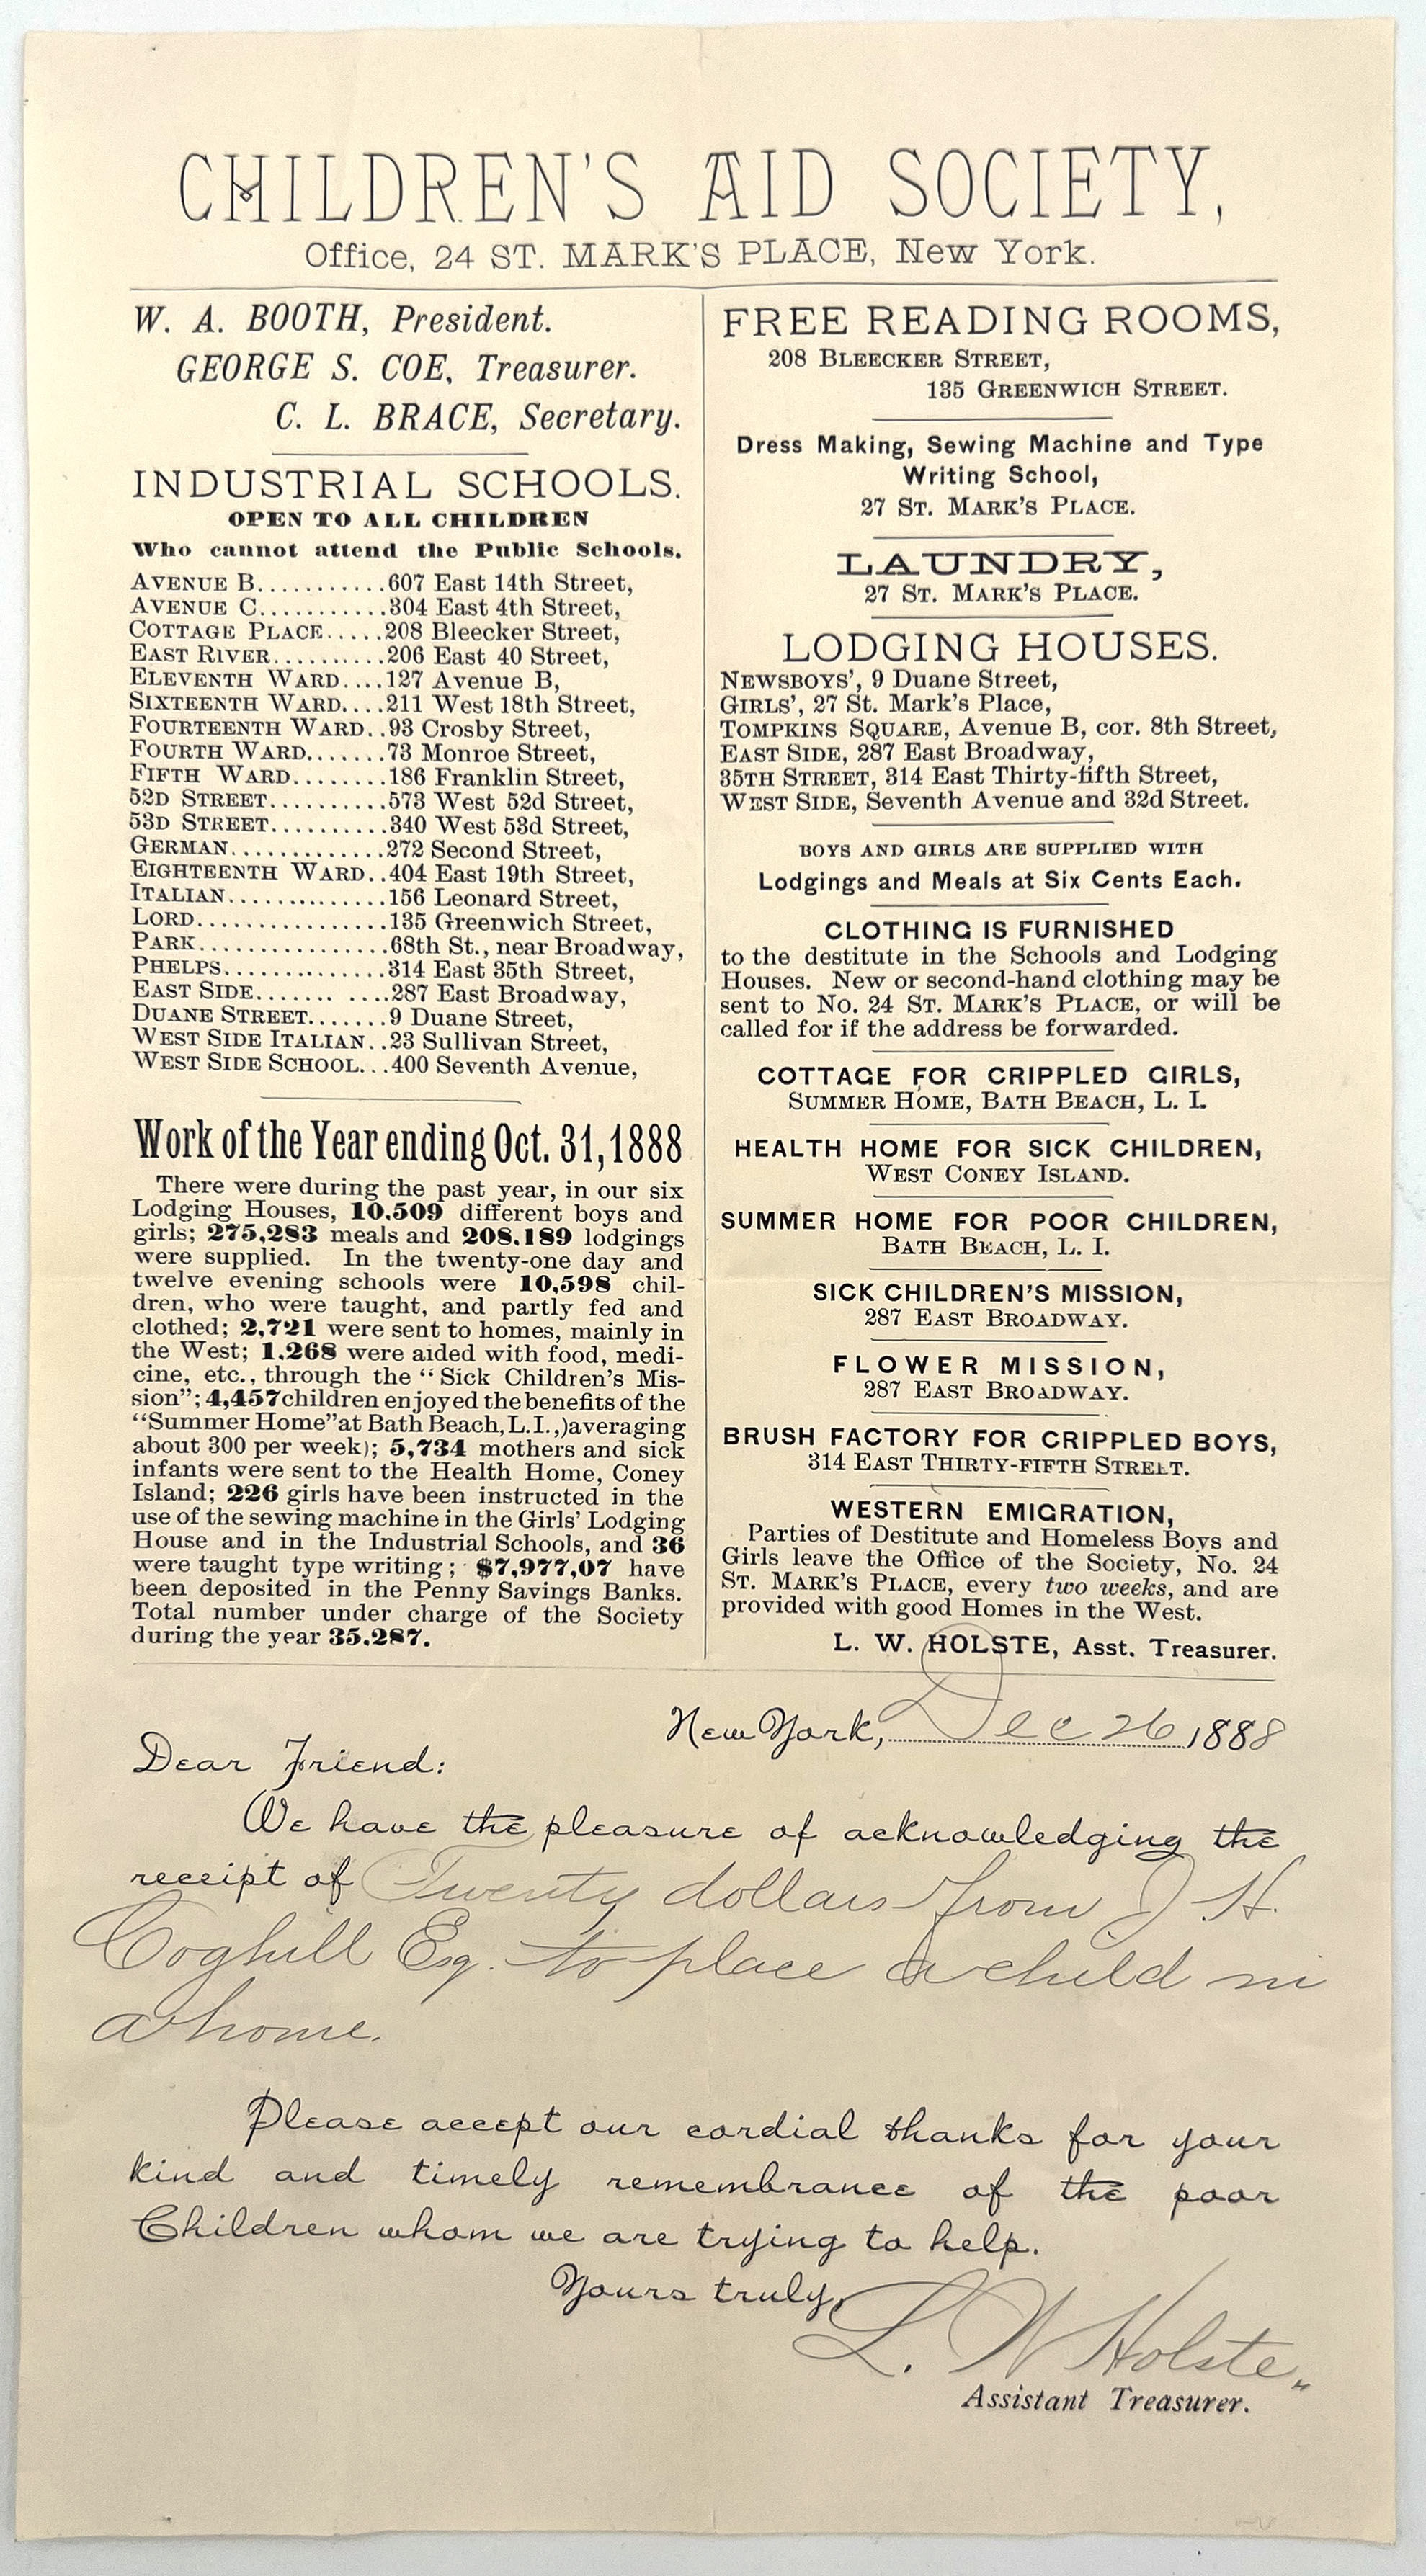 CHILDREN'S AID SOCIETY,
Office, 24 ST. MARK'S PLACE, New York.
W. A. BOOTH, President.
GEORGE S. COE, Treasurer.
C. L. BRACE, Secretary.
INDUSTRIAL SCHOOLS.
OPEN TO ALL CHILDREN
Who cannot attend the Public Schools.
AVENUE B...........607 East 14th Street,
AVENUE C...........304 East 4th Street,
COTTAGE PLACE.....208 Bleecker Street,
EAST RIVER..........206 East 40 Street,
ELEVENTH WARD....127 Avenue B,
SIXTEENTH WARD....211 West 18th Street,
FOURTEENTH WARD..93 Crosby Street,
FOURTH WARD.......73 Monroe Street,
FIFTH WARD........186 Franklin Street,
52D STREET..........573 West 52d Street,
53D STREET..........340 West 53d Street,
GERMAN.............272 Second Street,
EIGHTEENTH WARD..404 East 19th Street,
ITALIAN..............156 Leonard Street,
LORD.................135 Greenwich Street,
PARK................68th St., near Broadway,
PHELPS..............314 East 35th Street,
EAST SIDE....... ....287 East Broadway,
DUANE STREET.......9 Duane Street,
WEST SIDE ITALIAN..23 Sullivan Street,
WEST SIDE SCHOOL...400 Seventh Avenue,
Work of the Year ending Oct. 31, 1888
There were during the past year, in our six
Lodging Houses, 10.509 different boys and
girls; 275,283 meals and 208.189 lodgings
were supplied. In the twenty-one day and
twelve evening schools were 10,598 chil-
dren, who were taught, and partly fed and
clothed; 2,721 were sent to homes, mainly in
the West; 1.268 were aided with food, medi-
cine, etc., through the "Sick Children's Mis-
sion"; 4,457 children enjoyed the benefits of the
"Summer Home" at Bath Beach, L.I.,)averaging
about 300 per week); 5,734 mothers and sick
infants were sent to the Health Home, Coney
Island; 226 girls have been instructed in the
use of the sewing machine in the Girls' Lodging
House and in the Industrial Schools, and 36
were taught type writing; $7,977,07 have
been deposited in the Penny Savings Banks.
Total number under charge of the Society
during the year 35.287.
FREE READING ROOMS,
208 BLEECKER STREET,
135 GREENWICH STREET.
Dress Making, Sewing Machine and Type
Writing School,
27 ST. MARK'S PLACE.
LAUNDRY,
27 ST. MARK'S PLACE.
LODGING HOUSES.
NEWSBOYS', 9 Duane Street,
GIRLS', 27 St. Mark's Place,
TOMPKINS SQUARE, Avenue B, cor. 8th Street,
EAST SIDE, 287 East Broadway,
35TH STREET, 314 East Thirty-fifth Street,
WEST SIDE, Seventh Avenue and 32d Street.
BOYS AND GIRLS ARE SUPPLIED WITH
Lodgings and Meals at Six Cents Each.
CLOTHING IS FURNISHED
to the destitute in the Schools and Lodging
Houses. New or second-hand clothing may be
sent to No. 24 ST. MARK'S PLACE, or will be
called for if the address be forwarded.
COTTAGE FOR CRIPPLED GIRLS,
SUMMER HOME, BATH BEACH, L. I.
HEALTH HOME FOR SICK CHILDREN,
WEST CONEY ISLAND.
SUMMER HOME FOR POOR CHILDREN,
BATH BEACH, L. I.
SICK CHILDREN'S MISSION,
287 EAST BROADWAY.
FLOWER MISSION,
287 EAST BROADWAY.
BRUSH FACTORY FOR CRIPPLED BOYS,
314 EAST THIRTY-FIFTH STREET.
WESTERN EMIGRATION,
Parties of Destitute and Homeless Boys and
Girls leave the Office of the Society, No. 24
ST. MARK'S PLACE, every two weeks, and are
provided with good Homes in the West.
L. W. HOLSTE, Asst. Treasurer.
New York, Dec 26 1888
Dear Friend:
We have the pleasure of acknowledging the
receipt of Twenty dollars from J. H.
Coghill Esq. to place a child in
a home.
Please accept our cordial thanks for your
kind and timely remembrance of the poor
Children whom we are trying to help.
Yours truly,
L. W Holste,,
Assistant Treasurer.